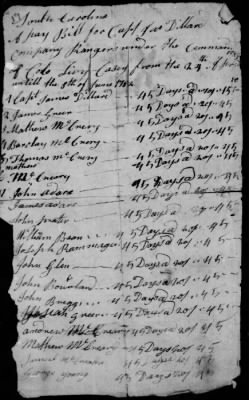 South Carolina
A pay Bill for Capt Jas Dillard
Company Rangers under the Command
of Colo Levy Casey from the 24th of
untill the 8th of June 1782
1 Capt James Dillard 45 Days
2 James Greer 45 Days a 20s 45
3 Mathew McCrery 45 Days a 20s 45
4 Barclay McCrery 45 Days a 20s 45
5 Thomas McCrery 45 Days a 20s 45
McCrery 45 Days a 20s 45
John Adare 45 Days a 20s 45
James Adare 45 Days a 20s 45
John 45 Days a 20s 45
William Bean 45 Days a 20s 45
Joseph Rammage 45 Days a 20s 45
John Glen 45 Days a 20s 45
John Rowland 45 Days a 20s 45
John 45 Days a 20s 45
Greer 45 Days a 20s 45
Andrew McCrery 45 Days a 20s 45
Mathew McCrery 45 Days 20s 45
Samuel 45
George Young 45 Days 20s 45